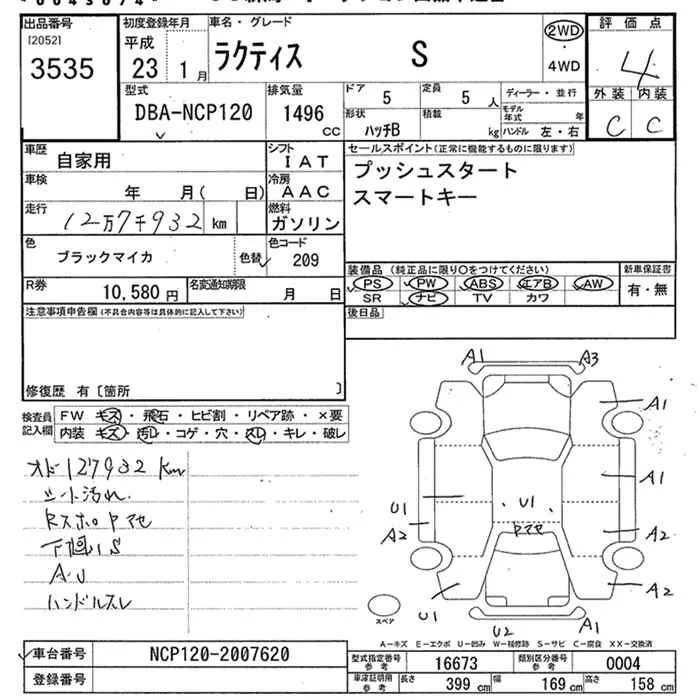 出品番号
[2052]
3535
初度登録年月
平成
23 1月
車名・グレード
ラクティス S
2WD
・
4WD
評価点
4
外装 内装
C C
型式
DBA-NCP120
排気量
1496
CC
ドア
5
定員
5 人
形状
ハッチB
積載
kg
ディーラー・並行
モデル年式 年
ハンドル 左・右
車歴
自家用
シフト
IAT
車検
年 月( 日)
冷房
AAC
走行
12万7千932 km
燃料
ガソリン
色
ブラックマイカ
色替
色コード
209
R券
10,580 円
名変通知期限
月 日
セールスポイント(正常に機能するものに限ります)
プッシュスタート
スマートキー
装備品(純正品に限り○をつけてください)
新車保証書
PS PW ABS エアB AW
SR ナビ TV カワ
有・無
後日品
注意事項申告欄(不具合内容等は具体的に記入して下さい)
修復歴 有〔箇所 〕
検査員
記入欄
FW キズ・飛石・ヒビ割・リペア跡・×要
内装 キズ・汚レ・コゲ・穴・スレ・キレ・破レ
オド127932 km
シート汚れ
下廻りS
ハンドルスレ
A1 A3
A1
A1
U1
A2
U1
A2
U1
A2
U2
A1
スペア
A-キズ E-エクボ U-凹み W-補修跡 S-サビ C-腐食 XX-交換済
車台番号
NCP120-2007620
登録番号
型式指定番号
参考
16673
類別区分番号
参考
0004
車庫証明用
参考
長さ 399 cm
幅 169 cm
高さ 158 cm